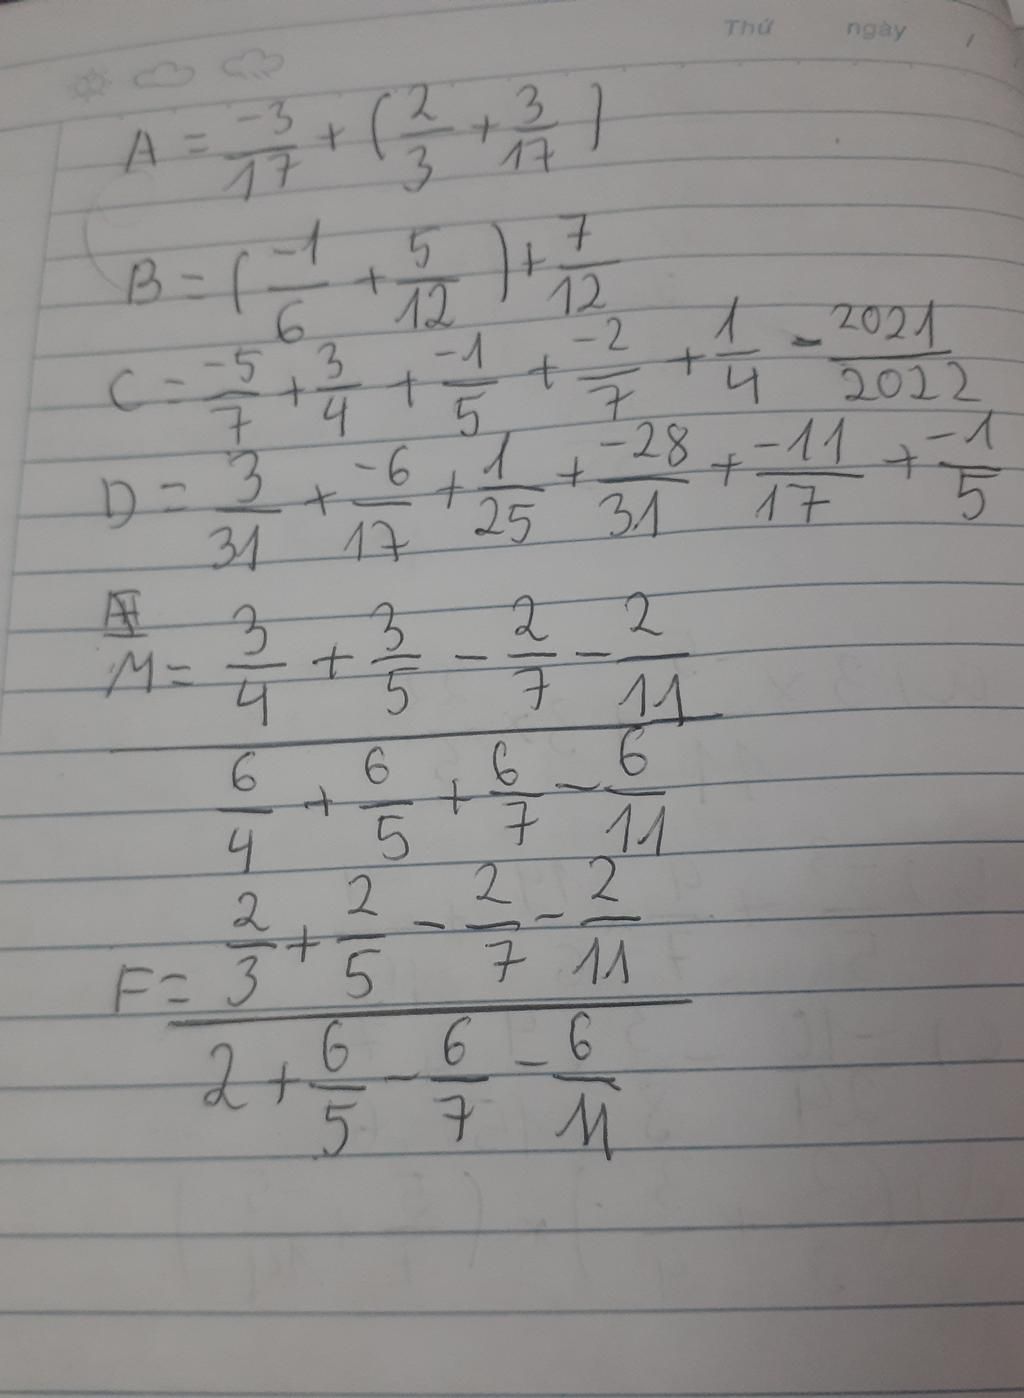 Thứ ngày /
A = -3/17 + (2/3 + 3/17)
B = (-1/6 + 5/12) + 7/12
C = -5/7 + 3/4 + -1/5 + -2/7 + 1/4 - 2021/2022
D = 3/31 + -6/17 + 1/25 + -28/31 + -11/17 + -1/5
M = 3/4 + 3/5 - 2/7 - 2/11
6/4 + 6/5 + 6/7 - 6/11
F = 2/3 + 2/5 - 2/7 - 2/11
2 + 6/5 - 6/7 - 6/11